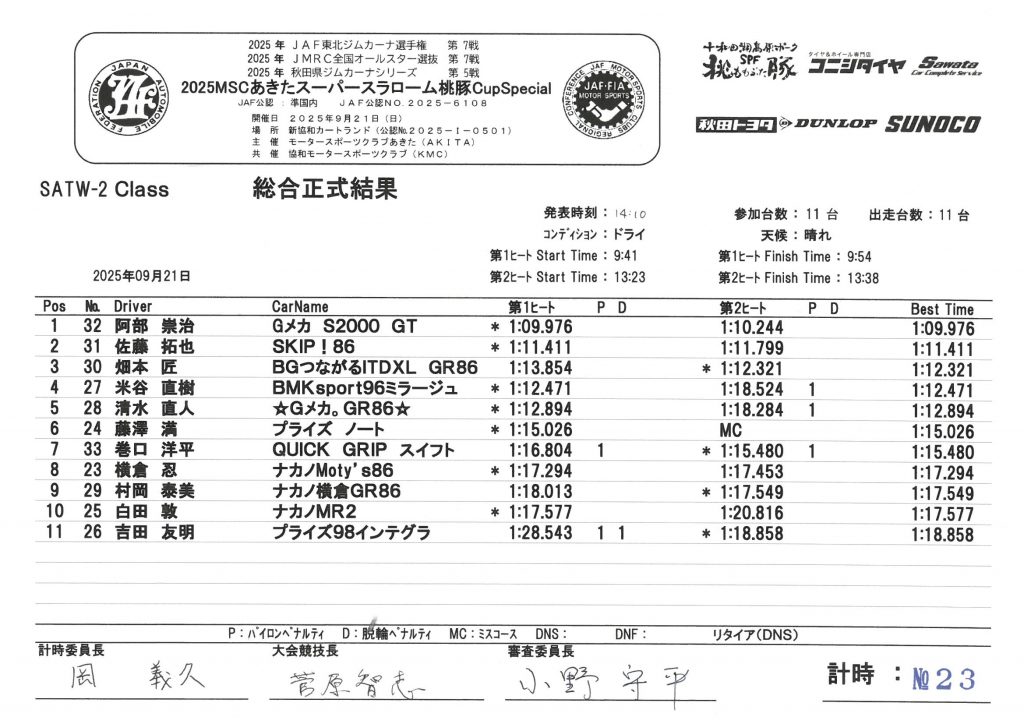 2025 年 ＪＡＦ東北ジムカーナ選手権 第 7戦
2025 年 ＪＭＲＣ全国オールスター選抜 第 7戦
2025 年 秋田県ジムカーナシリーズ 第 5戦
2025MSCあきたスーパースラローム桃豚CupSpecial
JAF公認 : 準国内 JAF公認NO.2025-6108
開催日 2025年9月21日（日）
場 所 新協和カートランド（公認№2025-Ⅰ-0501）
主 催 モータースポーツクラブあきた（AKITA）
共 催 協和モータースポーツクラブ（KMC）
JAPAN AUTOMOBILE FEDERATION
JAF
CONFERENCE JAF MOTOR SPORTS CLUBS REGIONAL
JAF・FIA
MOTOR SPORTS
十和田湖高原ポーク
SPF
桃ももぶた豚
タイヤ&ホイール専門店
コニシタイヤ
Sawata
Car Complete Service
秋田トヨタ
DUNLOP
SUNOCO
SATW-2 Class 総合正式結果
発表時刻 : 14:10 参加台数 : 11 台 出走台数 : 11 台
ｺﾝﾃﾞｨｼｮﾝ : ドライ 天候 : 晴れ
第1ﾋｰﾄ Start Time : 9:41 第1ﾋｰﾄ Finish Time : 9:54
2025年09月21日 第2ﾋｰﾄ Start Time : 13:23 第2ﾋｰﾄ Finish Time : 13:38
Pos No. Driver CarName 第1ﾋｰﾄ P D 第2ﾋｰﾄ P D Best Time
1 32 阿部 崇治 Gメカ S2000 GT * 1:09.976 1:10.244 1:09.976
2 31 佐藤 拓也 SKIP！86 * 1:11.411 1:11.799 1:11.411
3 30 畑本 匠 BGつながるITDXL GR86 1:13.854 * 1:12.321 1:12.321
4 27 米谷 直樹 BMKsport96ミラージュ * 1:12.471 1:18.524 1 1:12.471
5 28 清水 直人 ☆Gメカ。GR86☆ * 1:12.894 1:18.284 1 1:12.894
6 24 藤澤 満 プライズ ノート * 1:15.026 MC 1:15.026
7 33 巻口 洋平 QUICK GRIP スイフト 1:16.804 1 * 1:15.480 1 1:15.480
8 23 横倉 忍 ナカノMoty's86 * 1:17.294 1:17.453 1:17.294
9 29 村岡 泰美 ナカノ横倉GR86 1:18.013 * 1:17.549 1:17.549
10 25 白田 敦 ナカノMR2 * 1:17.577 1:20.816 1:17.577
11 26 吉田 友明 プライズ98インテグラ 1:28.543 1 1 * 1:18.858 1:18.858
P : ﾊﾟｲﾛﾝﾍﾟﾅﾙﾃｨ D : 脱輪ﾍﾟﾅﾙﾃｨ MC : ﾐｽｺｰｽ DNS : DNF : リタイア(DNS)
計時委員長 大会競技長 審査委員長
岡 義久 菅原智志 小野 守平
計時 : №23